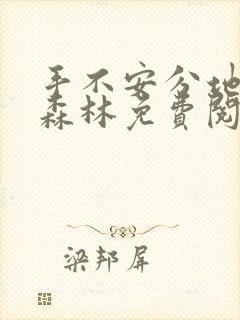 手不安分地
森林免费阅
梁邦屏